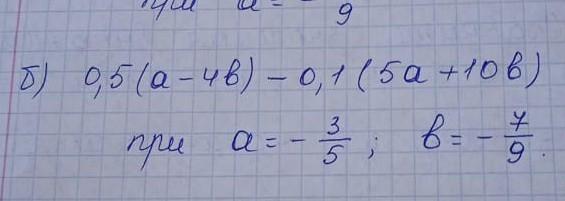 при a = - /9
б) 0,5(a - 4в) - 0,1(5a + 10в)
при a = - 3/5 ; в = - 7/9.